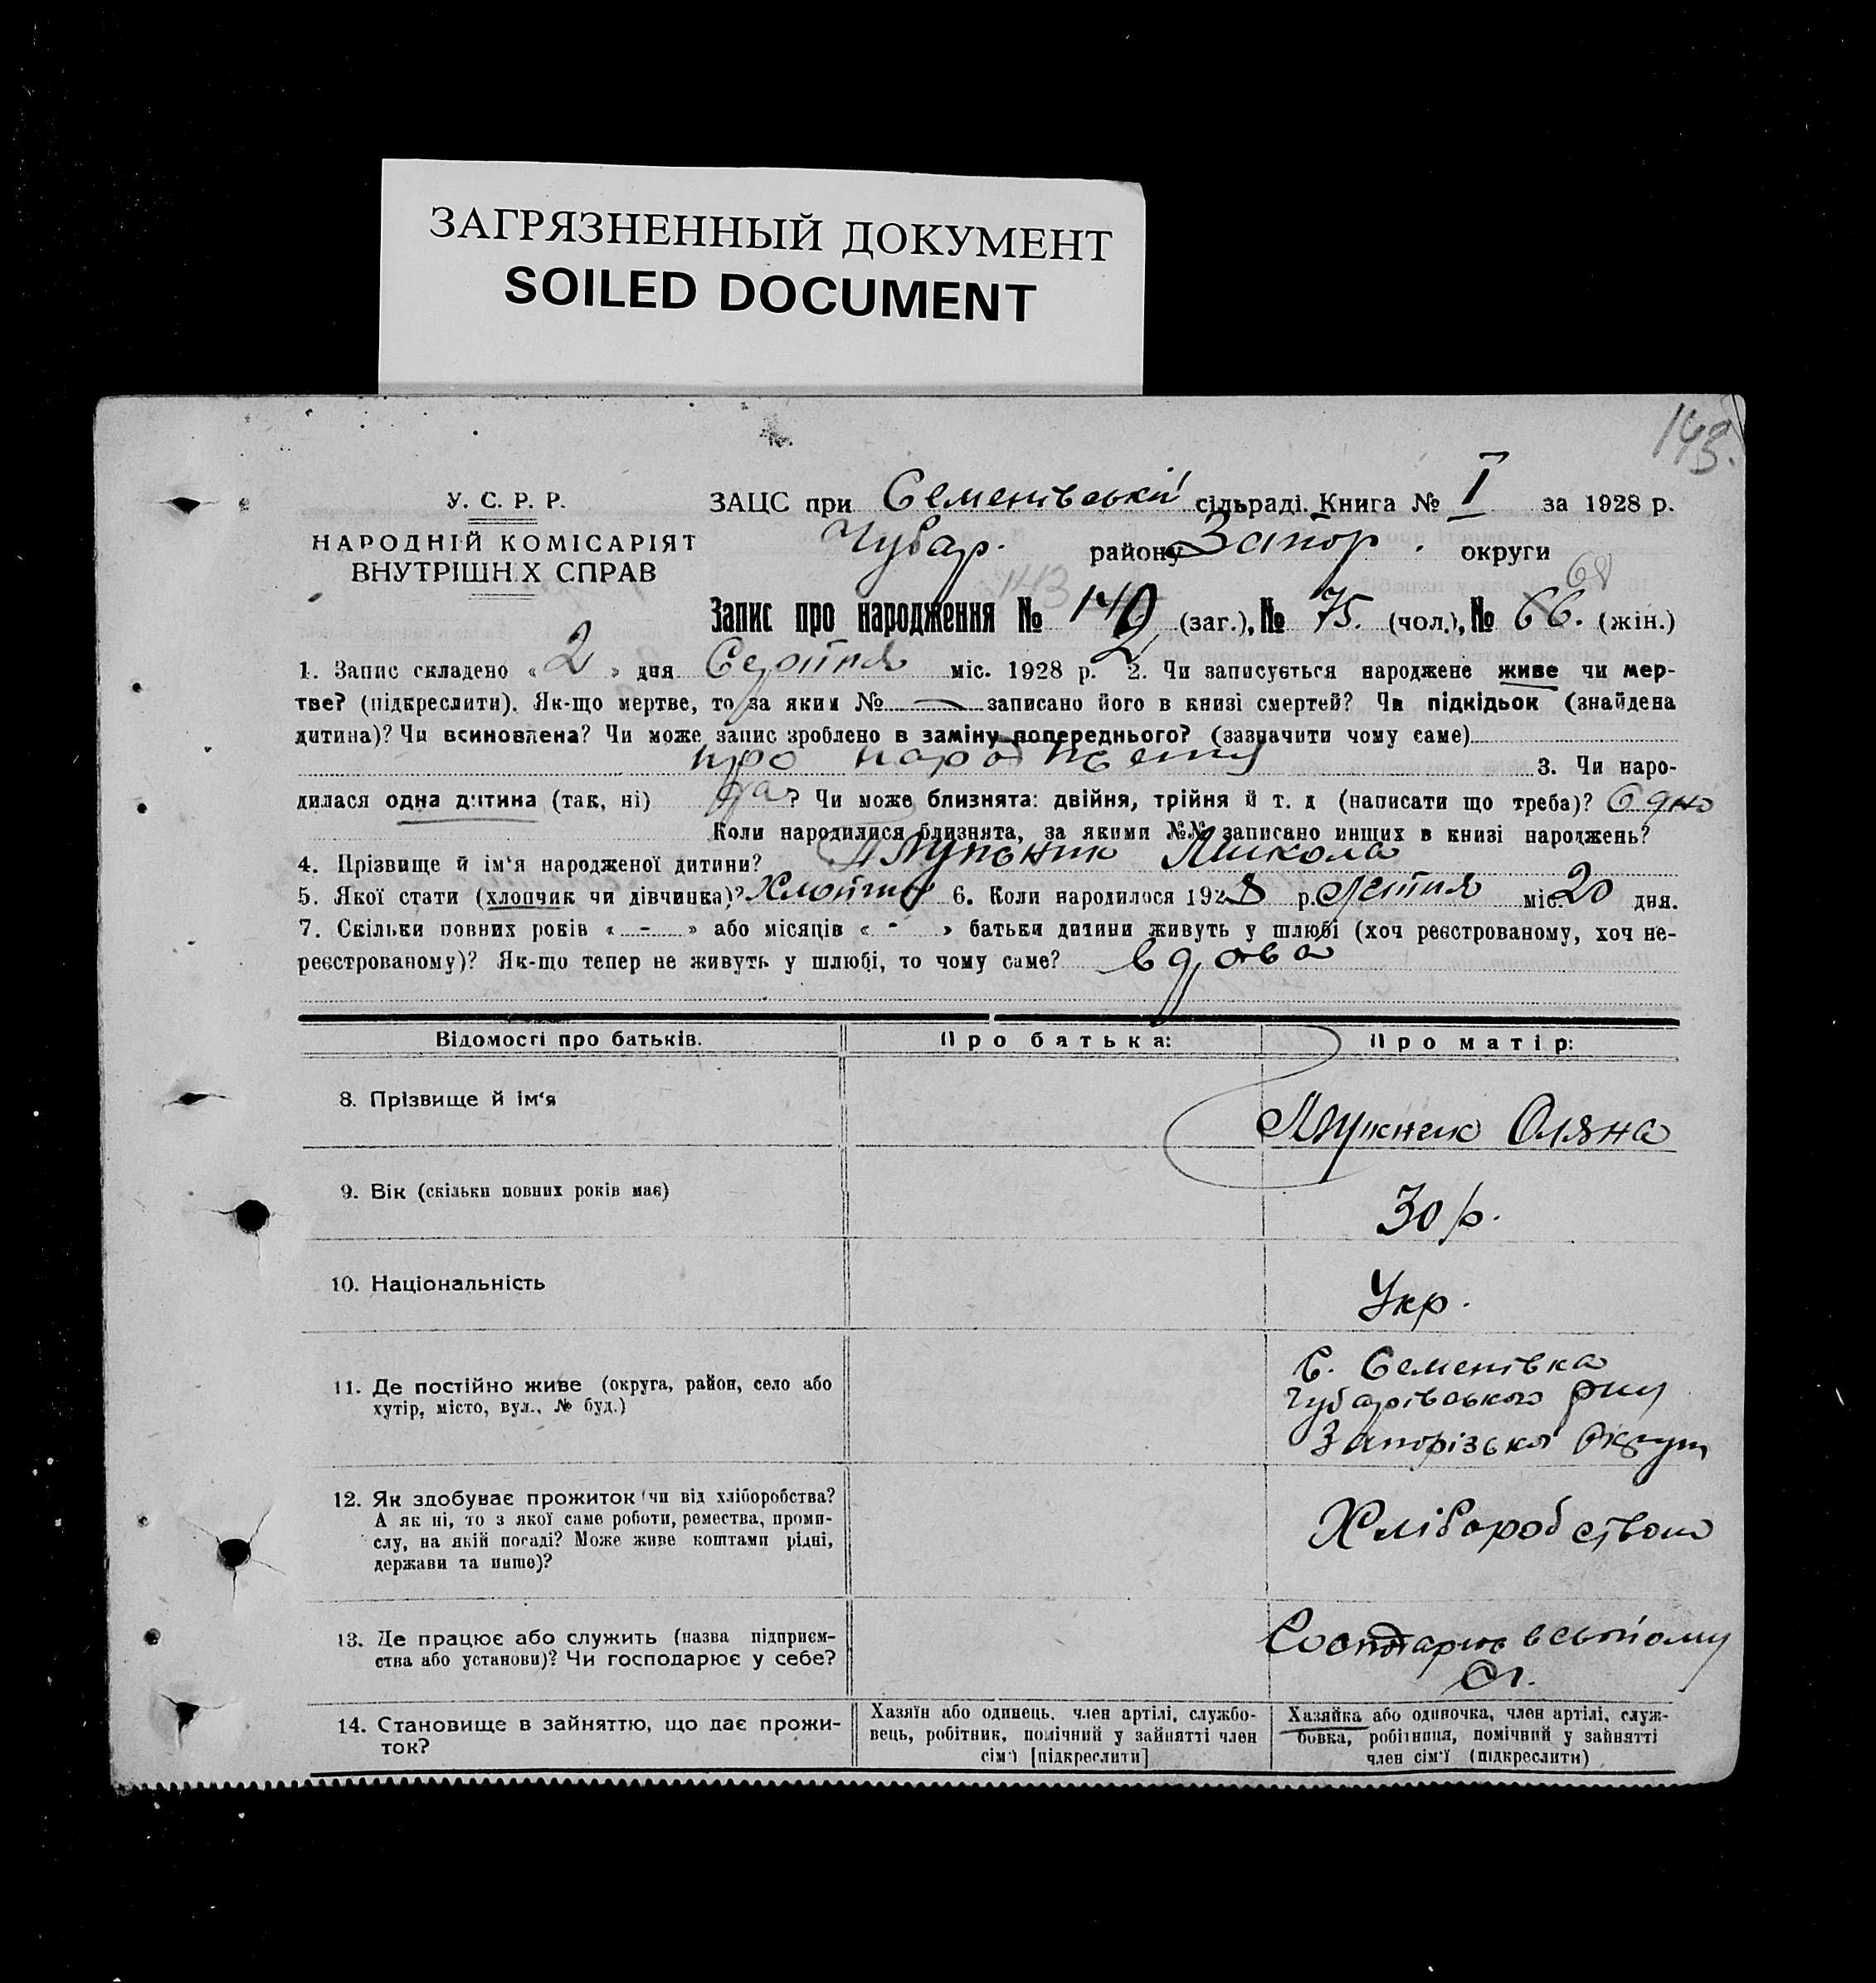 ЗАГРЯЗНЕННЫЙ ДОКУМЕНТ
SOILED DOCUMENT
143.
У. С. Р. Р.
НАРОДНІЙ КОМІСАРІЯТ
ВНУТРІШНІХ СПРАВ
ЗАЦС при Семенівській сільраді. Книга № I за 1928 р.
Чубар. району Запор. округи
143 68
Запис про народження № 142 (заг.), № 75. (чол.), № 66. (жін.)
1. Запис складено « 2 » дня Серпня міс. 1928 р. 2. Чи записується народжене живе чи мер-
тве? (підкреслити). Як-що мертве, то за яким № — записано його в книзі смертей? Чи підкідьок (знайдена
дитина)? Чи всиновлена? Чи може запис зроблено в заміну попереднього? (зазначити чому саме)
про 3. Чи наро-
дилася одна дитина (так, ні) да? Чи може близнята: двійня, трійня й т. д (написати що треба)? Одно
Коли народилися близнята, за якими №№ записано инших в книзі народжень?
4. Прізвище й ім‘я народженої дитини? Микола
5. Якої стати (хлопчик чи дівчинка)? 6. Коли народилося 1928 р. міс. 20 дня.
7. Скільки повних років « - » або місяців « - » батьки дитини живуть у шлюбі (хоч реєстрованому, хоч не-
реєстрованому)? Як-що тепер не живуть у шлюбі, то чому саме? вдова
Відомості про батьків. Про батька: Про матір:
8. Прізвище й ім‘я Оляна
9. Вік (скільки повних років має) 30 р.
10. Національність Укр.
11. Де постійно живе (округа, район, село або
хутір, місто, вул., № буд.)
С. Семенівка
Чубарівського р-ну
Запорізької Округи
12. Як здобуває прожиток (чи від хліборобства?
А як ні, то з якої саме роботи, ремества, проми-
слу, на якій посаді? Може живе коштами рідні,
держави та инше)?
Хліборобством
13. Де працює або служить (назва підприєм-
ства або установи)? Чи господарює у себе?
Господарює в своїому
14. Становище в зайняттю, що дає прожи-
ток?
Хазяїн або одинець, член артілі, службо-
вець, робітник, помічний у зайнятті член
сім‘ї [підкреслити]
Хазяйка або одиночка, член артілі, служ-
бовка, робітниця, помічний у зайнятті
член сім‘ї (підкреслити)